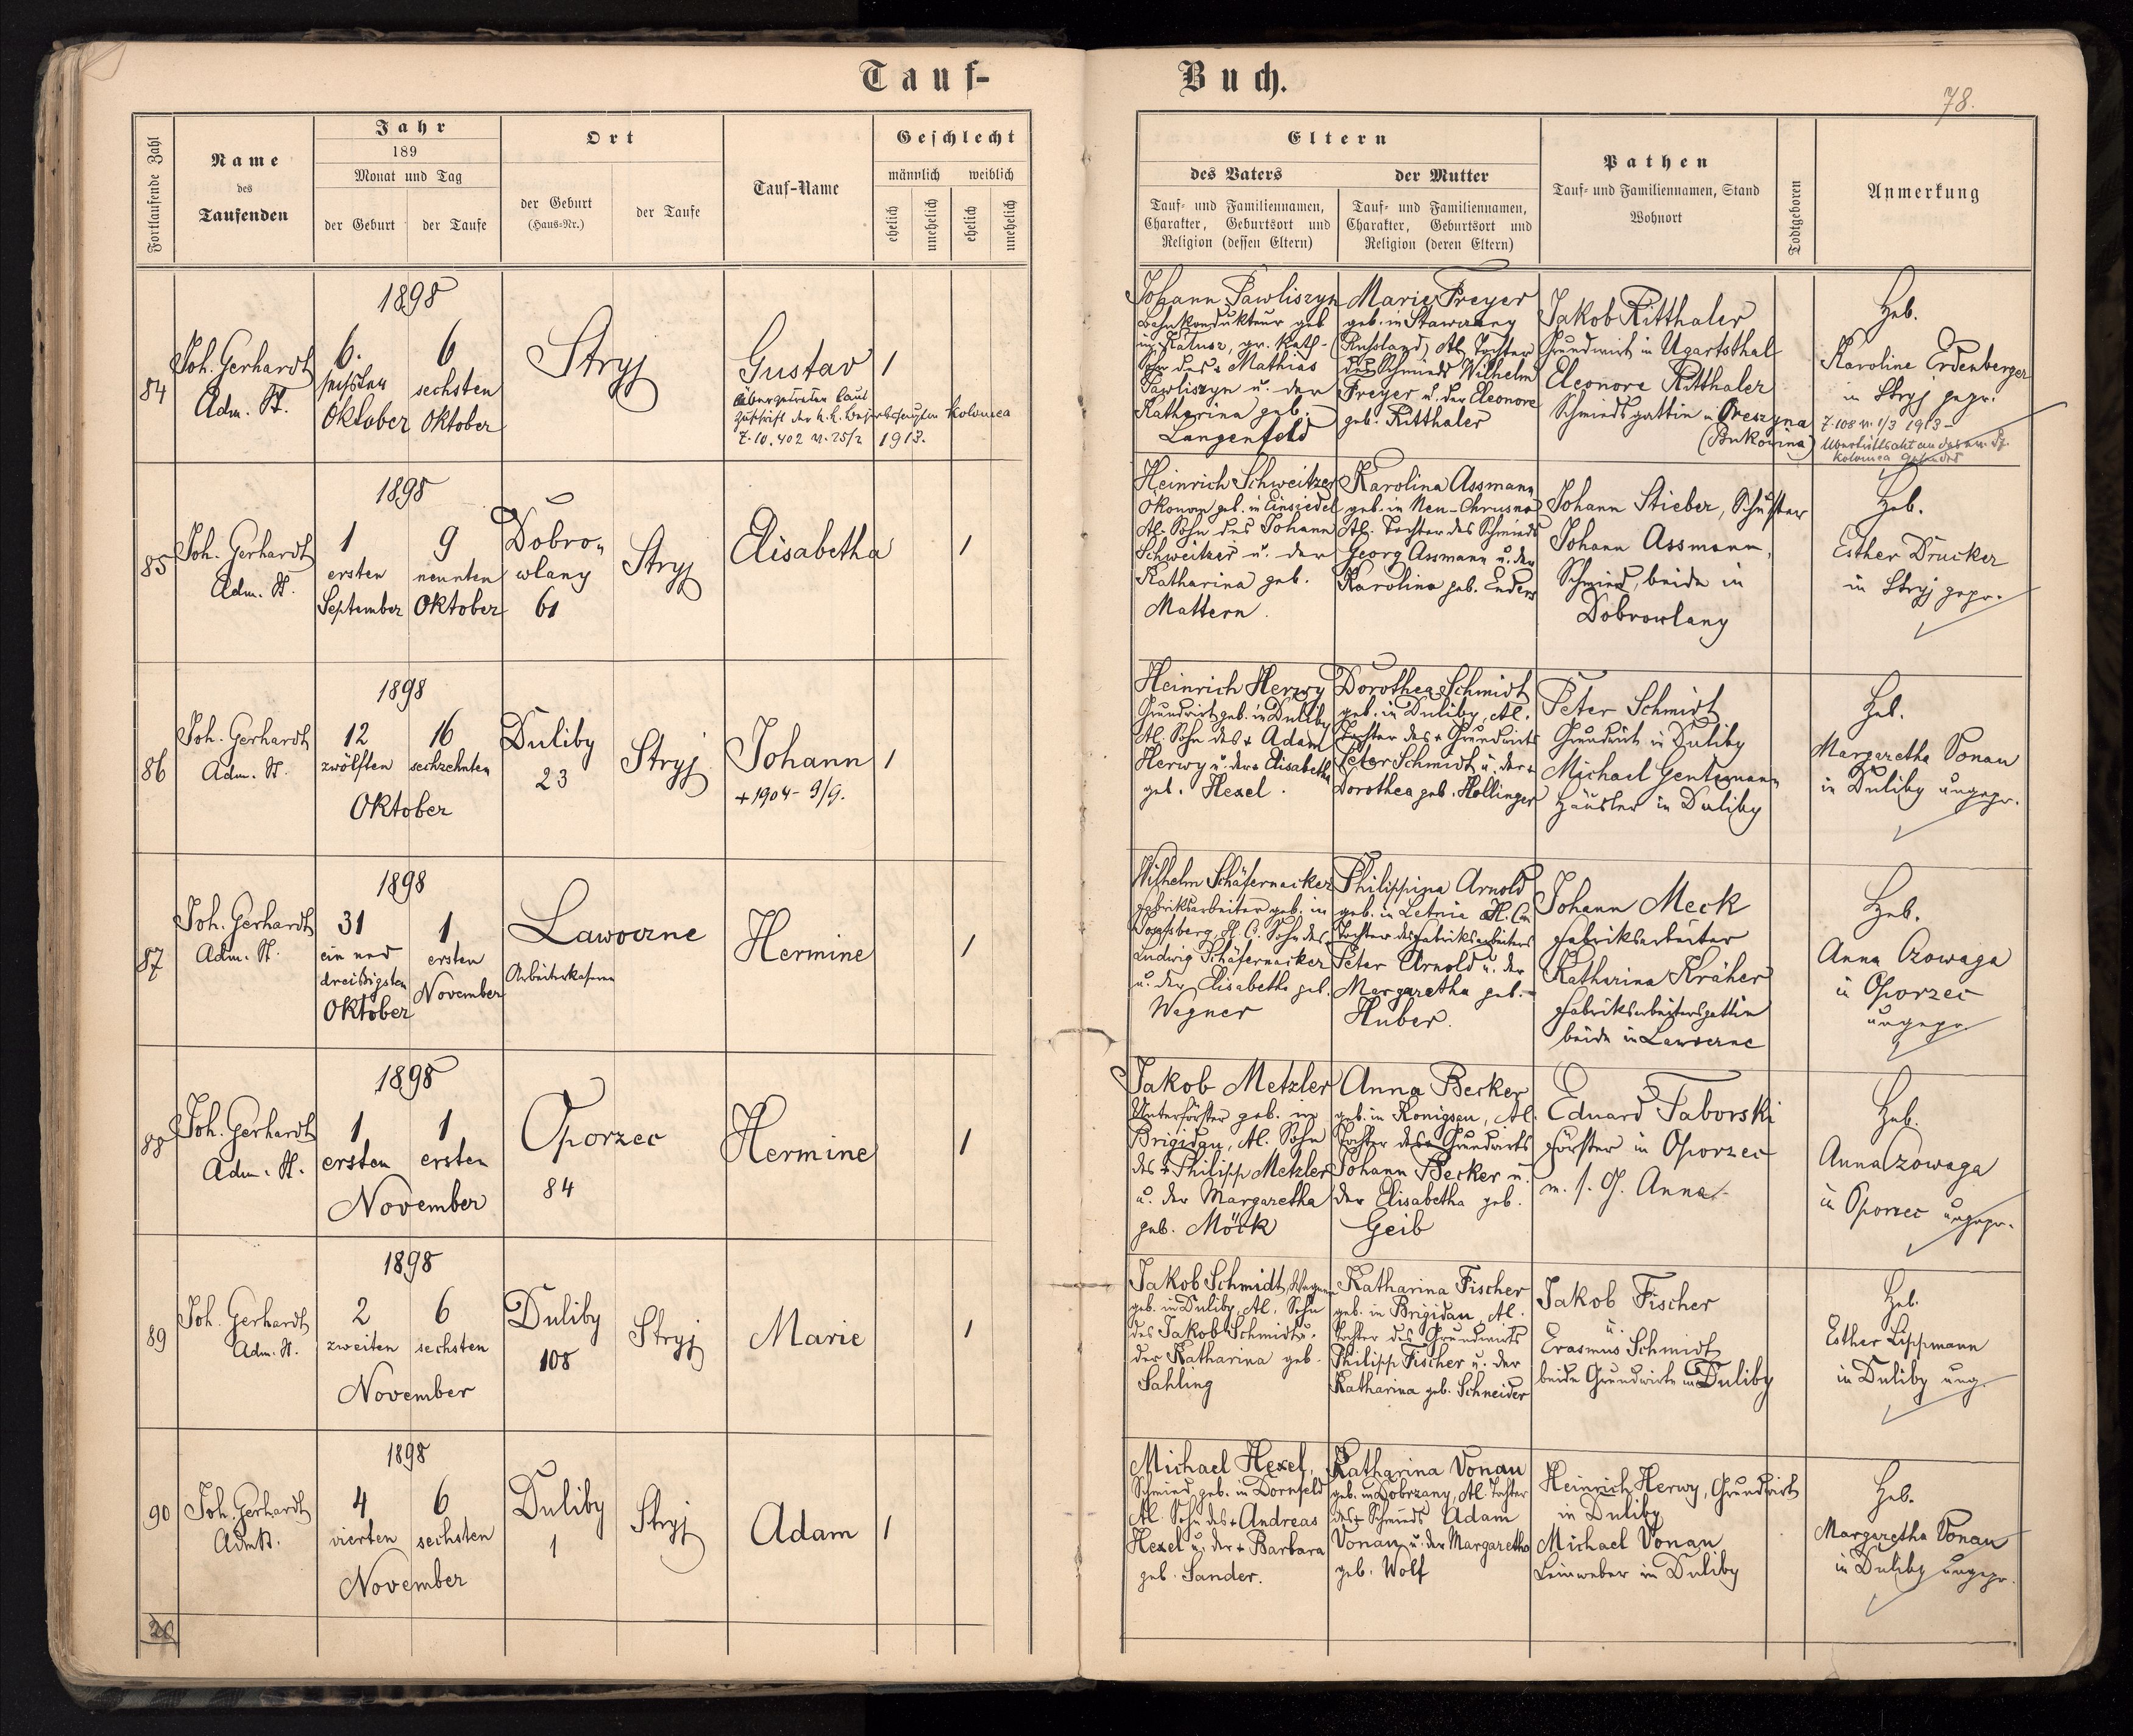 Tauf-
Buch.
78.
Fortlaufende Zahl
Name
des
Taufenden
Jahr
189
Monat und Tag
der Geburt
der Taufe
Ort
der Geburt
(Haus-Nr.)
der Taufe
Tauf-Name
Geschlecht
männlich
weiblich
ehelich
unehelich
ehelich
unehelich
Eltern
des Vaters
der Mutter
Tauf- und Familiennamen,
Charakter, Geburtsort und
Religion (dessen Eltern)
Tauf- und Familiennamen,
Charakter, Geburtsort und
Religion (deren Eltern)
Pathen
Tauf- und Familiennamen, Stand
Wohnort
Todtgeboren
Anmerkung
84
Joh. Gerhardt
Adm. St.
1898
6.
sechsten
Oktober
6
sechsten
Oktober
Stryj
Gustav
übergetreten laut
Zuschrift der k. k. Kolomea
Z. 10.402 v. 25/2 1913.
1
Johann Pawliszyn
Bahnkondukteur geb
in Kalusz, gr. kath-
Sohn des Mathias
Pawliszyn u. der
Katharina geb.
Langenfeld
Marie Freyer
geb. in
(Russland) Al. Tochter
des Schmieds Wilhelm
Freyer u. der Eleonore
geb. Ritthaler
Jakob Ritthaler
Grundwirt in Ugartsthal
Eleonore Ritthaler
Schmiedsgattin in
(Bukowina)
Heb.
Karoline Erdenberger
in Stryj gepr.
Z. 108 v. 1/3 1913 -
Kolomea
85
Joh. Gerhardt
Adm. St.
1898
1
ersten
September
9
neunten
Oktober
Dobro-
wlany
61
Stryj
Elisabetha
1
Heinrich Schweitzer
Ökonom geb. in Einsiedel
Al. Sohn des Johann
Schweitzer u. der
Katharina geb.
Mattern.
Karolina Assmann
geb. in Neu-Chrusno
Al. Tochter des Schmieds
Georg Assmann u. der
Karolina geb. Enders
Johann Stieber, Schuster
Johann Assmann,
Schmied, beide in
Dobrowlany
Heb.
Esther Drucker
in Stryj gepr.
86
Joh. Gerhardt
Adm. St.
1898
12
zwölften
16
sechzehnten
Oktober
Duliby
23
Stryj
Johann
+ 1904 - 9/9.
1
Heinrich Herwy
Grundwirt geb. in Duliby
Al. Sohn des + Adam
Herwy u. der + Elisabetha
geb. Hexel.
Dorothea Schmidt
geb. in Duliby, Al.
Tochter des + Grundwirts
Peter Schmidt u. der +
Dorothea geb. Hollinger
Peter Schmidt
Grundwirt in Duliby
Michael
Häusler in Duliby
Heb.
Margaretha Vonau
in Duliby ungepr.
87
Joh. Gerhardt
Adm. St.
1898
31
ein und
dreißigsten
Oktober
1
ersten
November
Lawoczne
Arbeiterkaserne
Hermine
1
Wilhelm Schäfernacker
Fabriksarbeiter geb. in
H. C. Sohn des
Ludwig Schäfernacker
u. der Elisabetha geb.
Wagner
Philippina Arnold
geb. in Letnia H. C.
Tochter des Fabriksarbeiters
Peter Arnold u. der
Margaretha geb.
Huber.
Johann Meck
Fabriksarbeiter
Katharina Kräher
Fabriksarbeitersgattin
beide in Lawoczne
Heb.
Anna Czowaga
in Oporzec
ungepr.
88
Joh. Gerhardt
Adm. St.
1898
1
ersten
1
ersten
November
Oporzec
84
Hermine
1
Jakob Metzler
Unterförster geb. in
Brigidau, Al. Sohn
des + Philipp Metzler
u. der Margaretha
geb. Möck
Anna Becker
geb. in Königsau, Al.
Tochter des Grundwirts
Johann Becker u.
der Elisabetha geb.
Geib
Eduard Taborski
Förster in Oporzec
m. s. G. Anna
Heb.
Anna Czowaga
in Oporzec ungepr.
89
Joh. Gerhardt
Adm. St.
1898
2
zweiten
6
sechsten
November
Duliby
108
Stryj
Marie
1
Jakob Schmidt, Wagner
geb. in Duliby, Al. Sohn
des Jakob Schmidt u.
der Katharina geb.
Sahling
Katharina Fischer
geb. in Brigidau, Al.
Tochter des Grundwirts
Philipp Fischer u. der
Katharina geb. Schneider
Jakob Fischer
u.
Erasmus Schmidt
beide Grundwirte in Duliby
Heb.
Esther Lippmann
in Duliby ung.
90
Joh. Gerhardt
Adm. St.
1898
4
vierten
6
sechsten
November
Duliby
1
Stryj
Adam
1
Michael Hexel,
Schmied, geb. in Dornfeld
Al. Sohn des + Andreas
Hexel u. der + Barbara
geb. Sander.
Katharina Vonau
geb. in Dobrzany, Al. Tochter
des + Schmieds Adam
Vonau u. der Margaretha
geb. Wolf
Heinrich Herwy, Grundwirt
in Duliby
Michael Vonau
Leinweber in Duliby
Heb.
Margaretha Vonau
in Duliby ungepr.